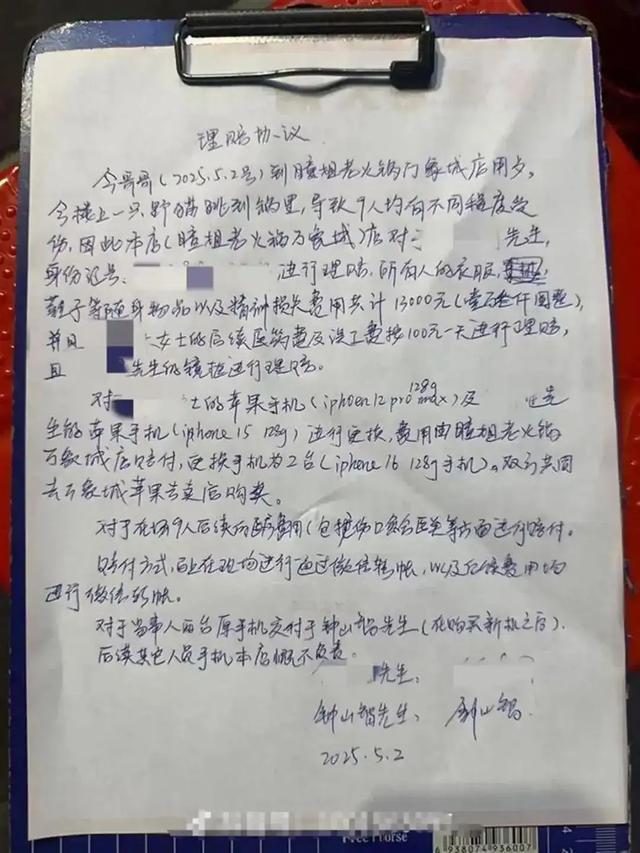 理赔协议
今哥哥(2025.5.2号)到瞳姐老火锅万象城店用夕,
今楼上一只野猫跳到锅里,导致9人均有不同程度受
伤,因此本店(瞳姐老火锅万象城)店对 先生,
身份证号: 进行理赔,所有人的衣服,
鞋子等随身物品以及精神损失费用共计13000元(壹万叁仟圆整),
并且 女士的后续医药费及误工费按100元一天进行理赔,
且 先生的镜框进行理赔。
对 士的苹果手机(iphoen 12 pro max 128g)及 先
生的苹果手机(iphone 15 128g)进行更换,费用由瞳姐老火锅
万象城店赔付,更换手机为2台(iphone 16 128g手机)。双方共同
去万象城苹果专卖店购买。
对于在场9人后续的医疗费用(包括伤口 等方面进行赔付。
赔付方式, 在现场进行通过微信转帐,以及后续费用均
进行微信转帐。
对于当事人两台原手机交付于钟山智先生(在购买新机之后).
后续其它人员手机本店概不负责。
先生:
钟山智先生: 钟山智
2025.5.2
Free Horse
6 938074 936007